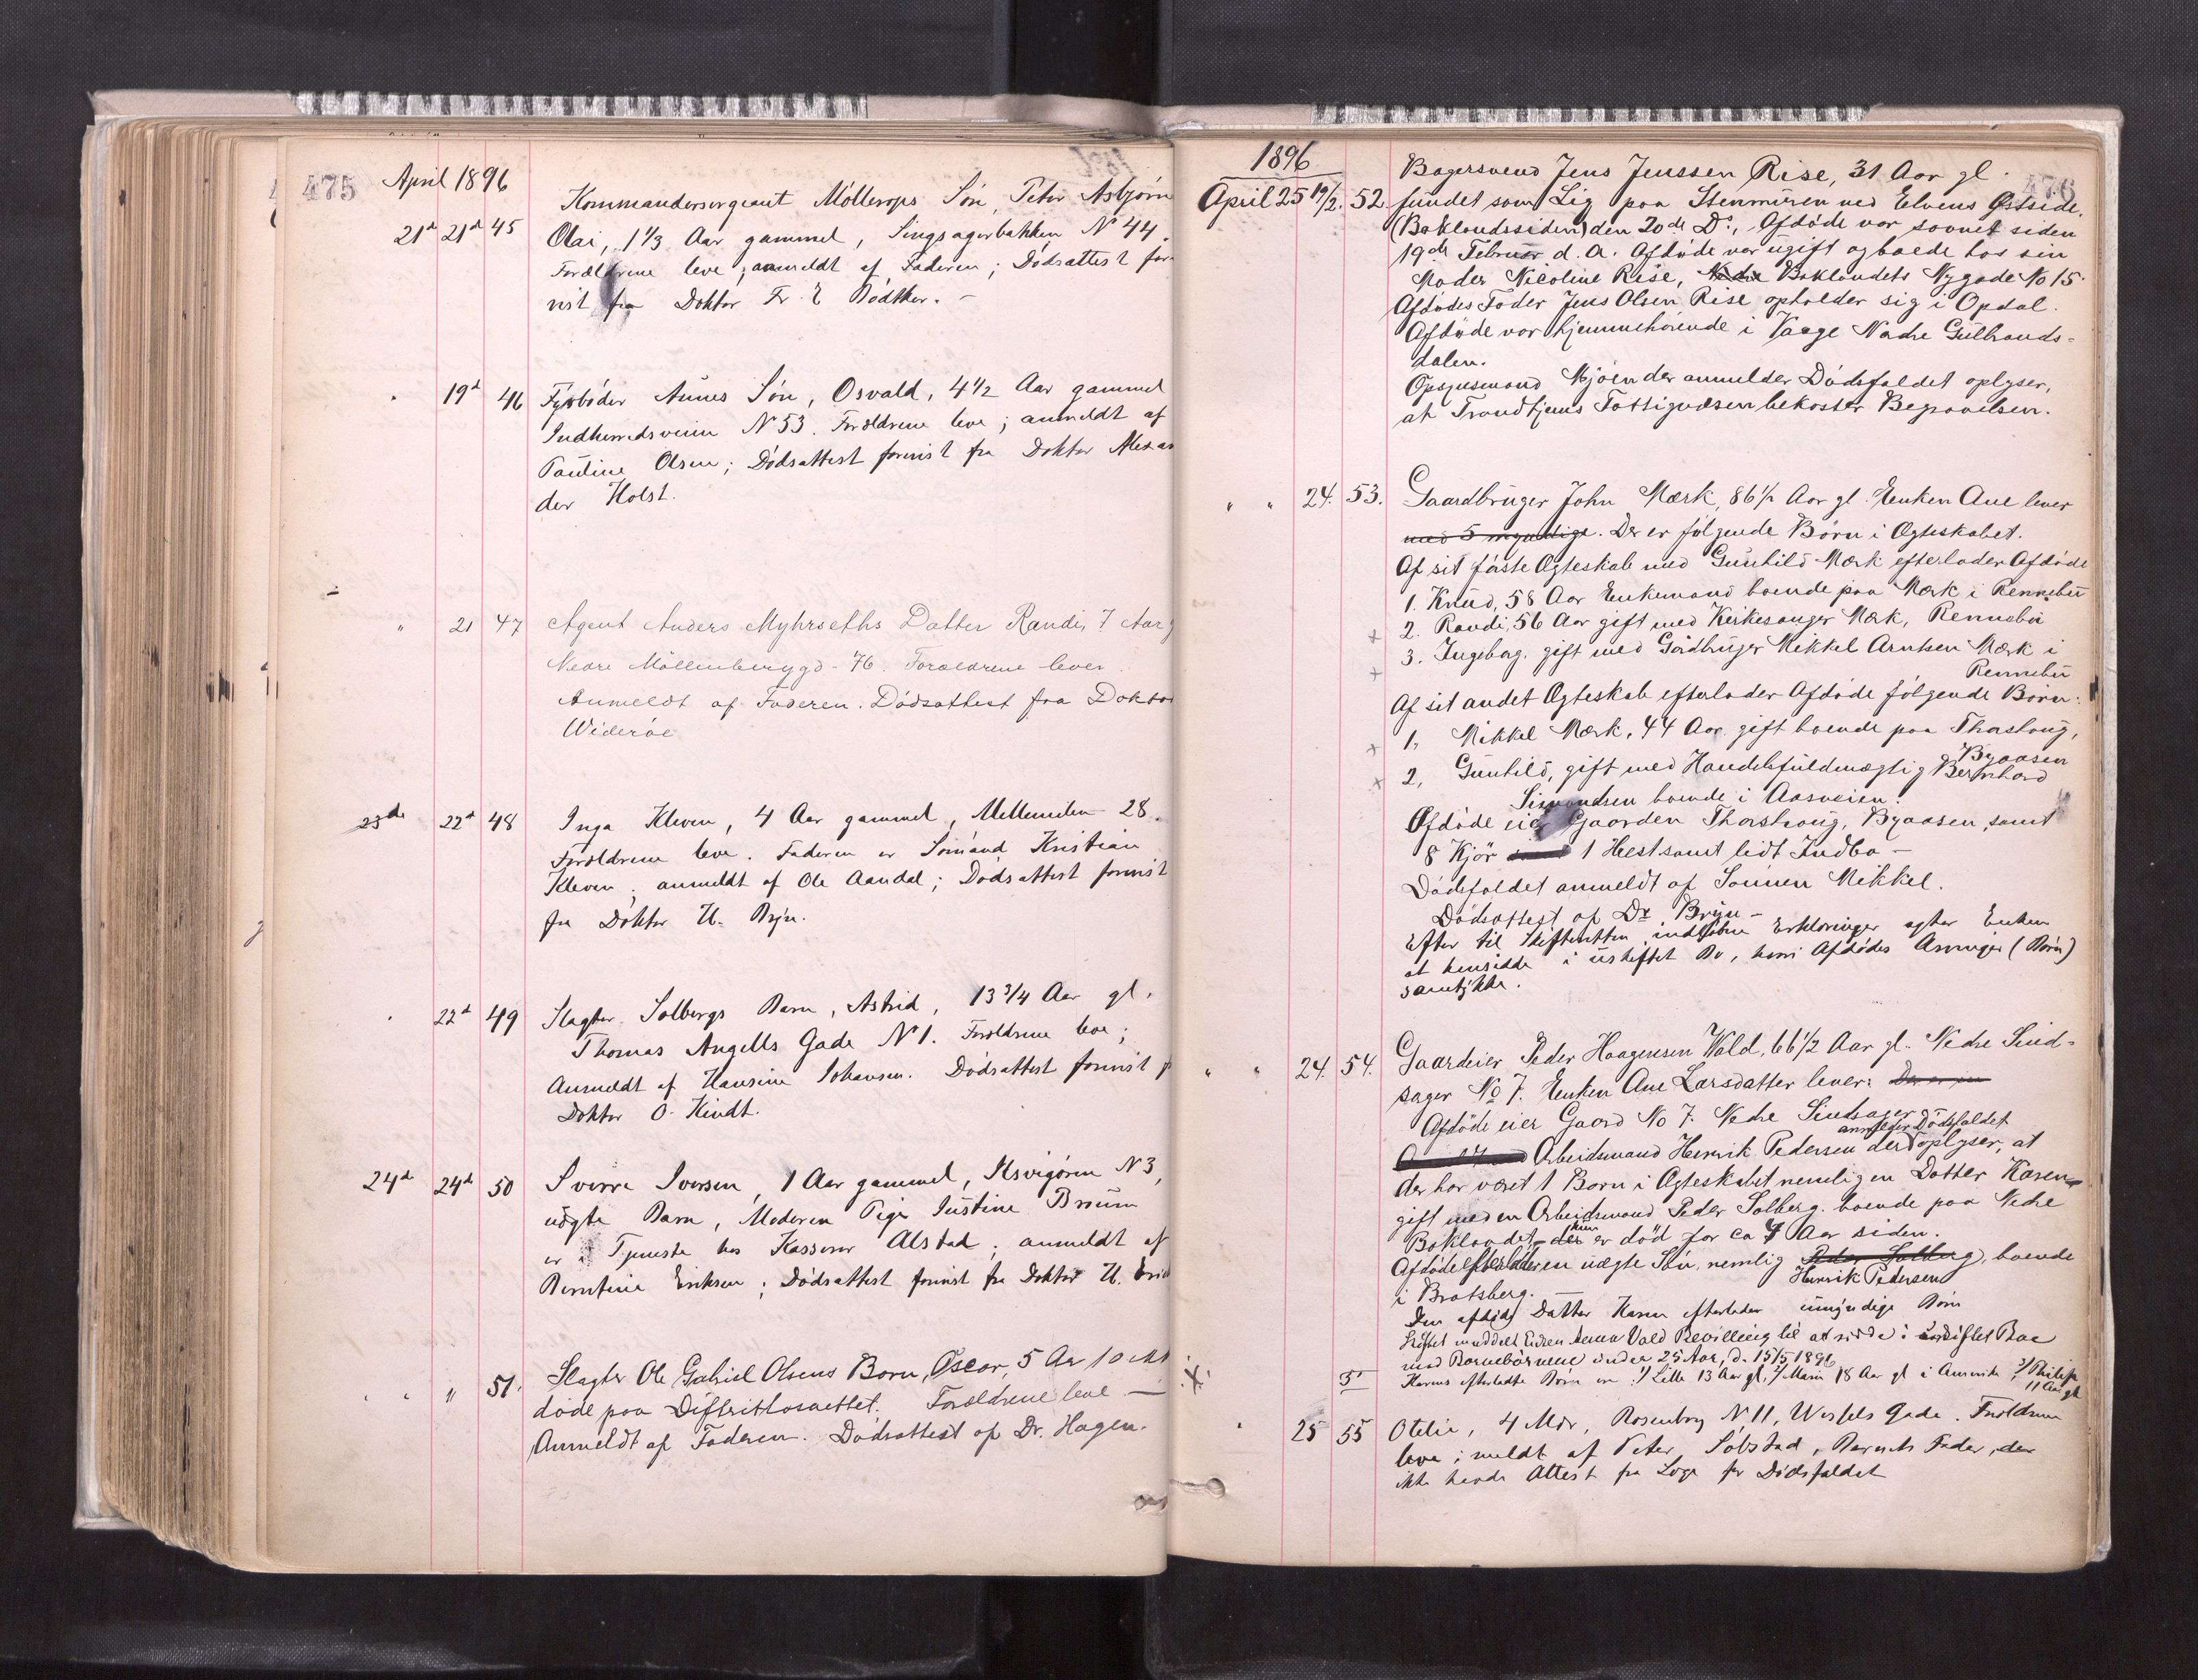 475
April 1896
21d 21d 45
Kommandersergeant Möllerops Sön, Peter Asbjörn
Olai, 1 1/3 Aar gammel, Singsagerbakken N 44.
Forældrene leve; anmeldt af Faderen; Dødsattest fore-
vist fra Doktor Fr. E Bödtker. -
" 19d 46
Fyrböder Aunes Sön, Osvald, 4 1/2 Aar gammel
Indherredsveien N 53. Forældrene leve; anmeldt af
Pauline Olsen; Dödsattest forevist fra Doktor Alexan
der Holst.
" 21 47
Agent Anders Myhrseths Datter Randi, 7 Aar g
Nedre Möllenbergd- 76. Forældrene lever.
Anmeldt af Faderen. Dödsattest fra Doktor
Wideröe
23de 22d 48
Inga Kleven, 4 Aar gammel, Mellemilen 28.
Forældrene leve. Faderen er Sömand Kristian
Kleven; anmeldt af Ole Aandal; Dødsattest forevist
fra Doktor H. Bryn.
" 22d 49
Slagter Solbergs Barn, Astrid, 13 3/4 Aar gl.
Thomas Angells Gade N 1. Forældrene leve;
Anmeldt af Hansine Johansen. Dødsattest forevist f
Doktor O. Kindt.
24de 24de 50
Sverre Iversen, 1 Aar gammel, Ilsvigören N 3,
uægte Barn, Moderen Pige Justine Bruun
er i Tjeneste hos Kasserer Alstad; anmeldt af
Berntine Eriksen; Dödsattest forevist fra Doktor U.
" " " 51.
Slagter Ole Gabriel Olsens Barn, Oscar, 5 Aar 10 Md
döde paa Difterithosacettet. Forældrene leve —
Anmeldt af Faderen. Dødsattest af Dr. Hagen.
1896
476
April 25 19/2. 52.
Bagersvend Jens Jenssen Rise, 31 Aar gl.
fundet som Lig paa Stenmuren ved Elvens Østside.
(Baklandssiden) den 20de Ds, Afdöde var savnet siden
19de Februar d. A. Afdöde var ugift og boede hos sin
Moder Nicoline Rise, Nedre Baklandets Nygade No 15.
Afdödes Fader Jens Olsen Rise opholder sig i Opdal.
Afdöde var hjemmehörende i Vaage Nordre Gulbrands-
dalen.
Opsynsmand Mjöen der anmelder Dödsfaldet oplyser,
at Trondhjems Fattigvæsen bekoster Begravelsen.
" " 24. 53.
Gaardbruger John Mærk, 86 1/2 Aar gl. Enken Ane lever
med 5 myndige. Der er fölgende Börn i Ægteskabet.
Af sit förste Ægteskab med Gunhild Mærk efterlader Afdöde
1. Knud, 58 Aar Enkemand boende paa Mærk i Rennebu
2. Randi, 56 Aar gift med Kirkesanger Mærk, Rennebu
3. Ingebog. gift med Gårdbruger Mikkel Arntsen Mærk i
Rennebu
Af sit andet Ægteskab efterlader Afdöde fölgende Börn:
1, Mikkel Mærk, 44 Aar gift boende paa Thorshaug,
Byaasen
2, Gunhild, gift med Handelsfuldmægtig Bernhard
Simondsen boende i Aasveien.
Afdöde eier Gaarden Thorshaug, Byaasen, samt
8 Kjör 1 Hest samt lidt Indbo -
Dödsfaldet anmeldt af Sönnen Mikkel.
Dödsattest af Dr Bryn -
Efter til Skifteretten indgivne Erklæringer agter Enken
at hensidde i uskiftet Bo, hvori Afdödes Arvinger (Börn)
samtykke.
" " 24. 54.
Gaardeier Peder Haagensen Wold, 66 1/2 Aar gl. Nedre Sind-
sager No 7. Enken Ane Larsdatter lever.
Afdöde eier Gaard No 7. Nedre Sindsager
anmelder Dödsfaldet
Arbeidsmand Henrik Pedersen der oplyser, at
der har været 1 Barn i Ægteskabet nemlig en Datter Karen
gift med en Arbeidsmand Peder Solberg. boende paa Nedre
Baklandet, - der hun er död for ca 4 Aar siden.
Afdöde efterlader en uægte Sön, nemlig Peder Solberg, boende
Henrik Pedersen
i Bratsberg.
Den afdöde Datter Karen efterlader umyndige Börn
Skiftet meddelt Enken Anna Vold Bevilling til at sidde i uskiftet Boe
med Barnebörnene under 25 Aar, d. 15/5 1896
Karens efterladte Börn er: 1/ Lille 13 Aar gl, 2/ Marie 18 Aar gl i Amerika 3/ Philip
11 Aar gl
" 25 55
Otelie, 4 Mdr, Rosenborg N 11, Wessels Gade. Forældrene
leve; meldt af Peter Sölstad, Barnets Fader, der
ikke havde Attest fra Læge for Dödsfaldet